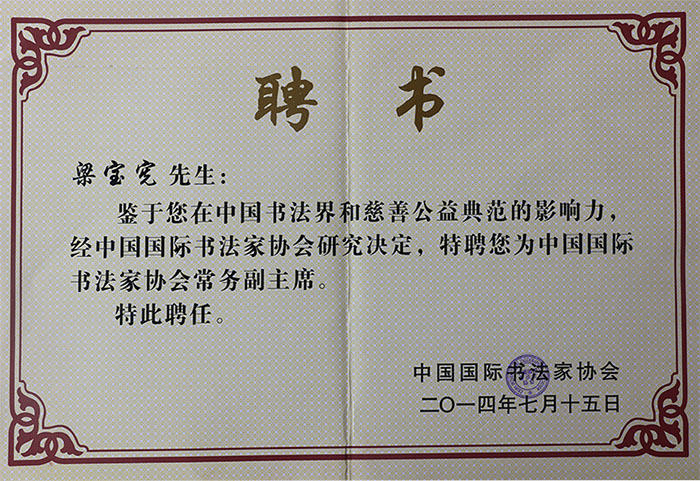 聘书
梁宝宪 先生：
鉴于您在中国书法界和慈善公益典范的影响力，
经中国国际书法家协会研究决定，特聘您为中国国际
书法家协会常务副主席。
特此聘任。
中国国际书法家协会
二〇一四年七月十五日